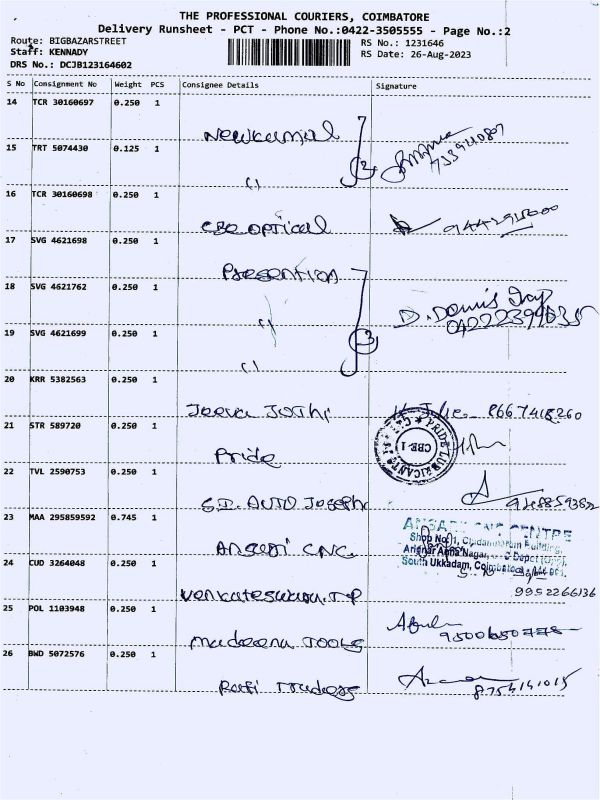 THE PROFESSIONAL COURIERS, COIMBATORE
Delivery Runsheet - PCT - Phone No.:0422-3505555 - Page No.:2
Route: BIGBAZARSTREET
RS No.: 1231646
Staff: KENNADY
RS Date: 26-Aug-2023
DRS No.: DCJB123164602
S No Consignment No Weight PCS Consignee Details Signature
14 TCR 30160697 0.250 1
15 TRT 5074430 0.125 1
16 TCR 30160698 0.250 1
CBE OPTICAL
17 SVG 4621698 0.250 1
18 SVG 4621762 0.250 1
19 SVG 4621699 0.250 1
3
20 KRR 5382563 0.250 1
Jeeva Jothi 8667418260
21 STR 589720 0.250 1
PRIDE LUBRICANTS
CBE-1
Pride
22 TVL 2590753 0.250 1
S.D. AUTO Joseph
23 MAA 295859592 0.745 1
CNC CENTRE
Shop No.1,
Building,
Arignar Anna Nagar,
South Ukkadam, Coimbatore
CNC
24 CUD 3264048 0.250 1
9952266136
Venkateswara. T.P
25 POL 1103948 0.250 1
Madeena TOOLS
26 BWD 5072576 0.250 1
Rafi Traders